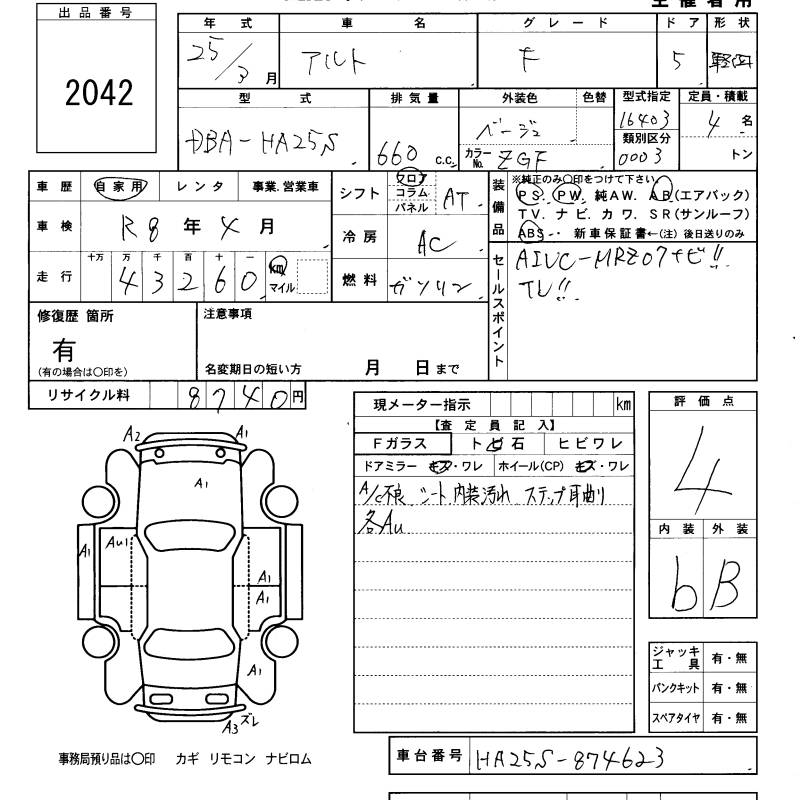 出品番号
2042
年式 車名 グレード ドア 形状
25/3月 アルト F 5 軽四
型式 排気量 外装色 色替 型式指定 定員・積載
DBA-HA25S 660 c.c. ベージュ カラーNo. ZGF 16403 類別区分 0003 4名 トン
車歴 自家用 レンタ 事業.営業車
車検 R8年4月
走行 十万 万 千 百 十 一
43260 km マイル
シフト フロア コラム パネル AT
冷房 AC
燃料 ガソリン
装備品 ※純正のみ○印をつけて下さい
PS. PW. 純AW. AB(エアバック)
TV. ナビ. カワ. SR(サンルーフ)
ABS・新車保証書←(注)後日送りのみ
セールスポイント
AIVC-MRZ07ナビ!!
TV!!
修復歴 箇所
有
(有の場合は○印を)
注意事項
名変期日の短い方 月 日まで
リサイクル料 8740円
現メーター指示 km
【査定員記入】
Fガラス トビ石 ヒビワレ
ドアミラー キズ・ワレ ホイール(CP) キズ・ワレ
A/C不良 シート 内装汚れ ステップ耳曲り
各Au
評価点
4
内装 外装
b B
ジャッキ工具 有・無
パンクキット 有・無
スペアタイヤ 有・無
A2 A1
A1
A1 Au1 A1
A1
A1
A3 ズレ
事務局預り品は○印 カギ リモコン ナビロム
車台番号 HA25S-874623